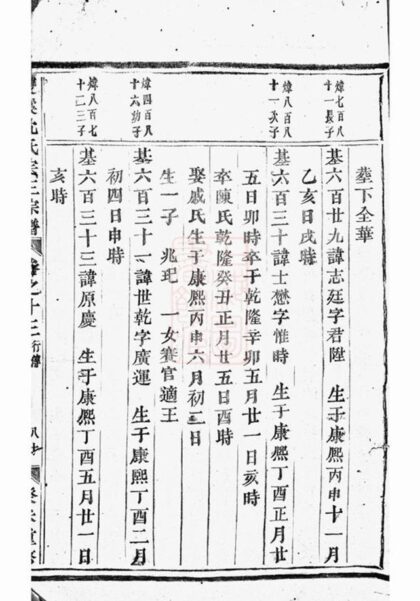 葬下全華
煒七百八
十一長子
基六百廿九諱志廷字君陞 生于康熙丙申十一月
乙亥日戌時
煒八百八
十一次子
基六百三十諱士懋字惟時 生于康熙丁酉正月廿
五日卯時卒于乾隆辛卯五月廿一日亥時
娶戚氏生于康熙丙申六月初二日
卒陳氏乾隆癸丑正月廿五日酉時
生一子 兆玘 一女賽官適王
煒四百八
十六幼子
基六百三十一諱世乾字廣運 生于康熙丁酉二月
初四日申時
煒八百七
十二三子
基六百三十三諱原慶 生于康熙丁酉五月廿一日
亥時
沈氏宗譜
卷之十三
行傳